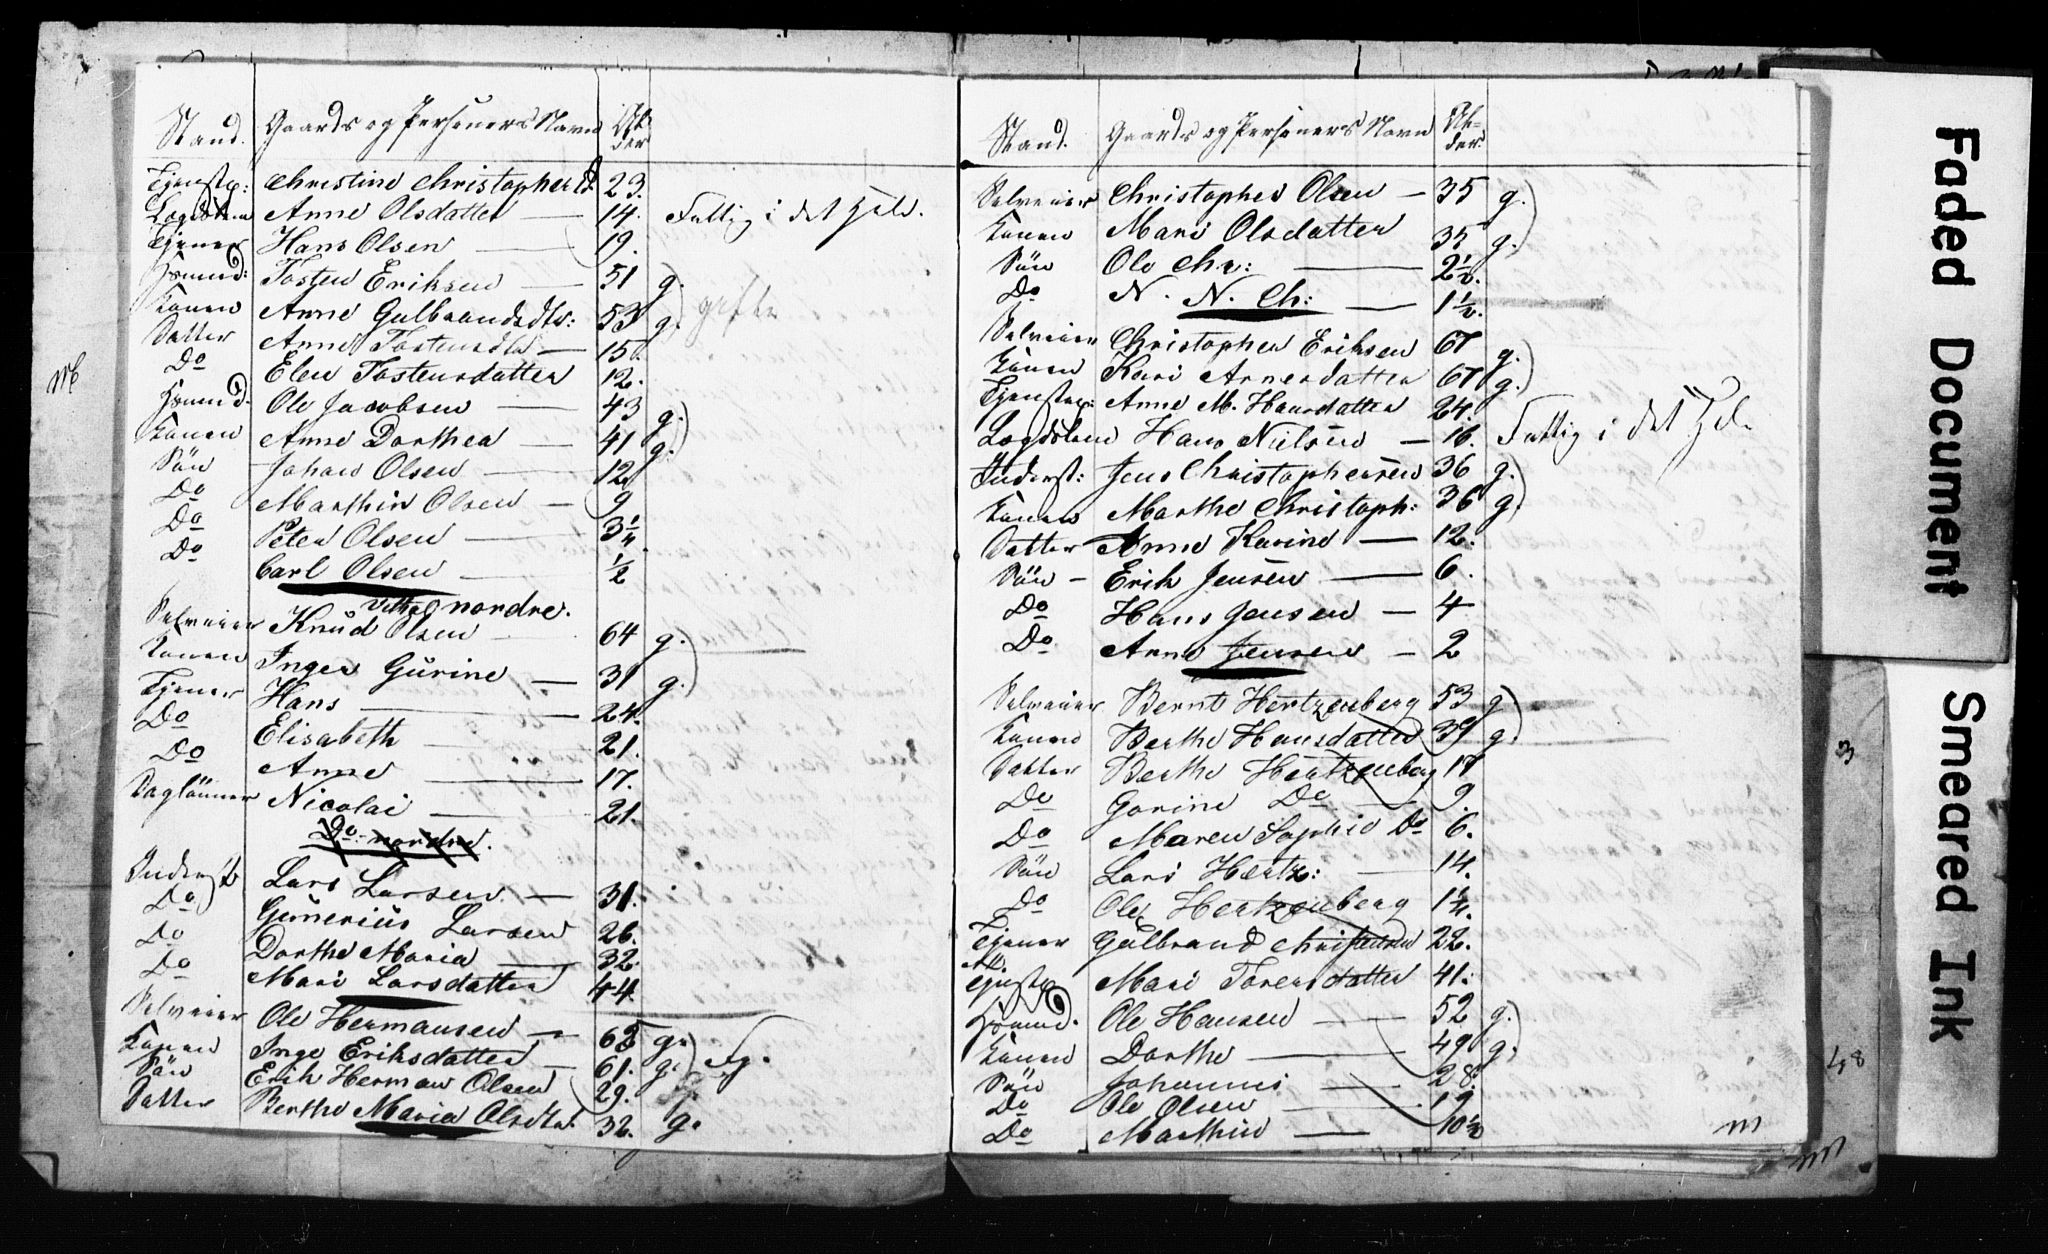 Stand. Gaards og Personers Navn Al-
der
Tjenstp: Christine Christophersd. 23.
Lægdslem Anne Olsdatter — 14. Fattig i det hele.
Tjener Hans Olsen — 19.
Huusmd: Tosten Eriksen — 51 g.
Konen Anne Gulbrandsdtr: 53 g. gifte
Datter Anne Tostensdtr — 15
Do Elen Tostensdatter 12.
Huusmd. Ole Jacobsen — 43 g.
Konen Anne Dorthea — 41 g.
Søn Johan Olsen — 12
Do Marthin Olsen — 9
Do Peter Olsen — 3 1/4
Do Carl Olsen — 1/2
nordre.
Selveier Knud Olsen — 64 g.
Konen Inger Gurine — 31 g.
Tjener Hans — 24.
Do Elisabeth — 21.
Do Anne — 17.
Daglønner Nicolai — 21.
Do nordre.
Inderst Lars Larsen — 31.
Do Gunerius Larsen 26.
Do Dorthe Maria — 32.
Do Mari Larsdatter 44.
Selveier Ole Hermansen — 63 g.
Konen Inge Eriksdatter — 61. g. Fg.
Søn Erik Herman Olsen 29.
Datter Berthe Maria Olsdtr. 32. g.
Stand. Gaards og Personers Navn Al-
der.
Selveier Christopher Olsen — 35 g.
Konen Mari Olsdatter 35 g.
Søn Ole Chr: — 2 1/2.
Do N. N. Ch: — 1 1/2.
Selveier Christopher Eriksen 67 g.
Konen Kari Arnesdatter 67 g.
Tjenstp: Anne M. Hansdatter 24.
Lægdslem Hans Nielsen — 16. Fattig i det hele
Inderst: Jens Christophersen 36 g.
Konen Marthe Christoph: 36 g.
Datter Anne Karine — 12.
Søn — Erik Jensen — 6.
Do Hans Jensen — 4
Do Arne Jensen — 2
Selveier Bernt Hertzenberg 53 g.
Konen Berthe Hansdatter 39 g.
Datter Berthe Hertzenberg 17
Do Gorine Do — 9.
Do Maren Sophie Do 6.
Søn Lars Hertz: — 14.
Do Ole Hertzenberg 1 1/4.
Tjener Gulbrand Christensen 22.
Tjenstp Mari Torersdatter 41.
Huusmd. Ole Hansen — 52 g.
Konen Dorthe — 49 g.
Søn Johannes — 28.
Do Ole Olsen — 19.
Do Marthin — 10 1/2
3
48
Faded Document
Smeared Ink